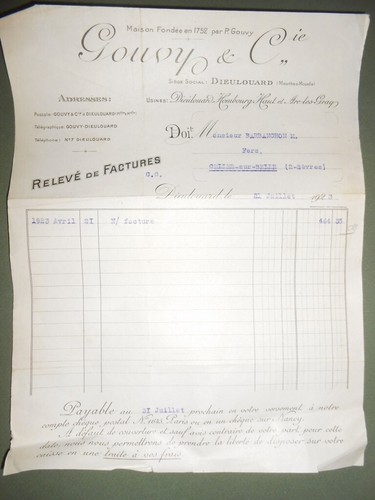 Maison Fondée en 1752 par P. Gouvy
Gouvy & Cie
Siège Social: DIEULOUARD (Meurthe & Moselle)
ADRESSES:
Usines: Dieulouard, Hombourg-Haut et Arc-les-Gray
Postale: GOUVY & Cie DIEULOUARD
Télégraphique: GOUVY-DIEULOUARD
Téléphone: N°7 DIEULOUARD
Doit Monsieur
Fers,
CELLES-sur-BELLE (2-Sèvres)
RELEVÉ DE FACTURES
G.G.
Dieulouard le 21 Juillet 1923.
1923 Avril 21 N/ facture
Payable au 21 Juillet prochain en votre versement à notre
compte chèque postal Paris ou en un chèque sur Nancy.
A défaut de couverture et sauf avis contraire de votre part pour cette
date, nous nous permettrons de prendre la liberté de disposer sur votre
caisse en une traite à vos frais.